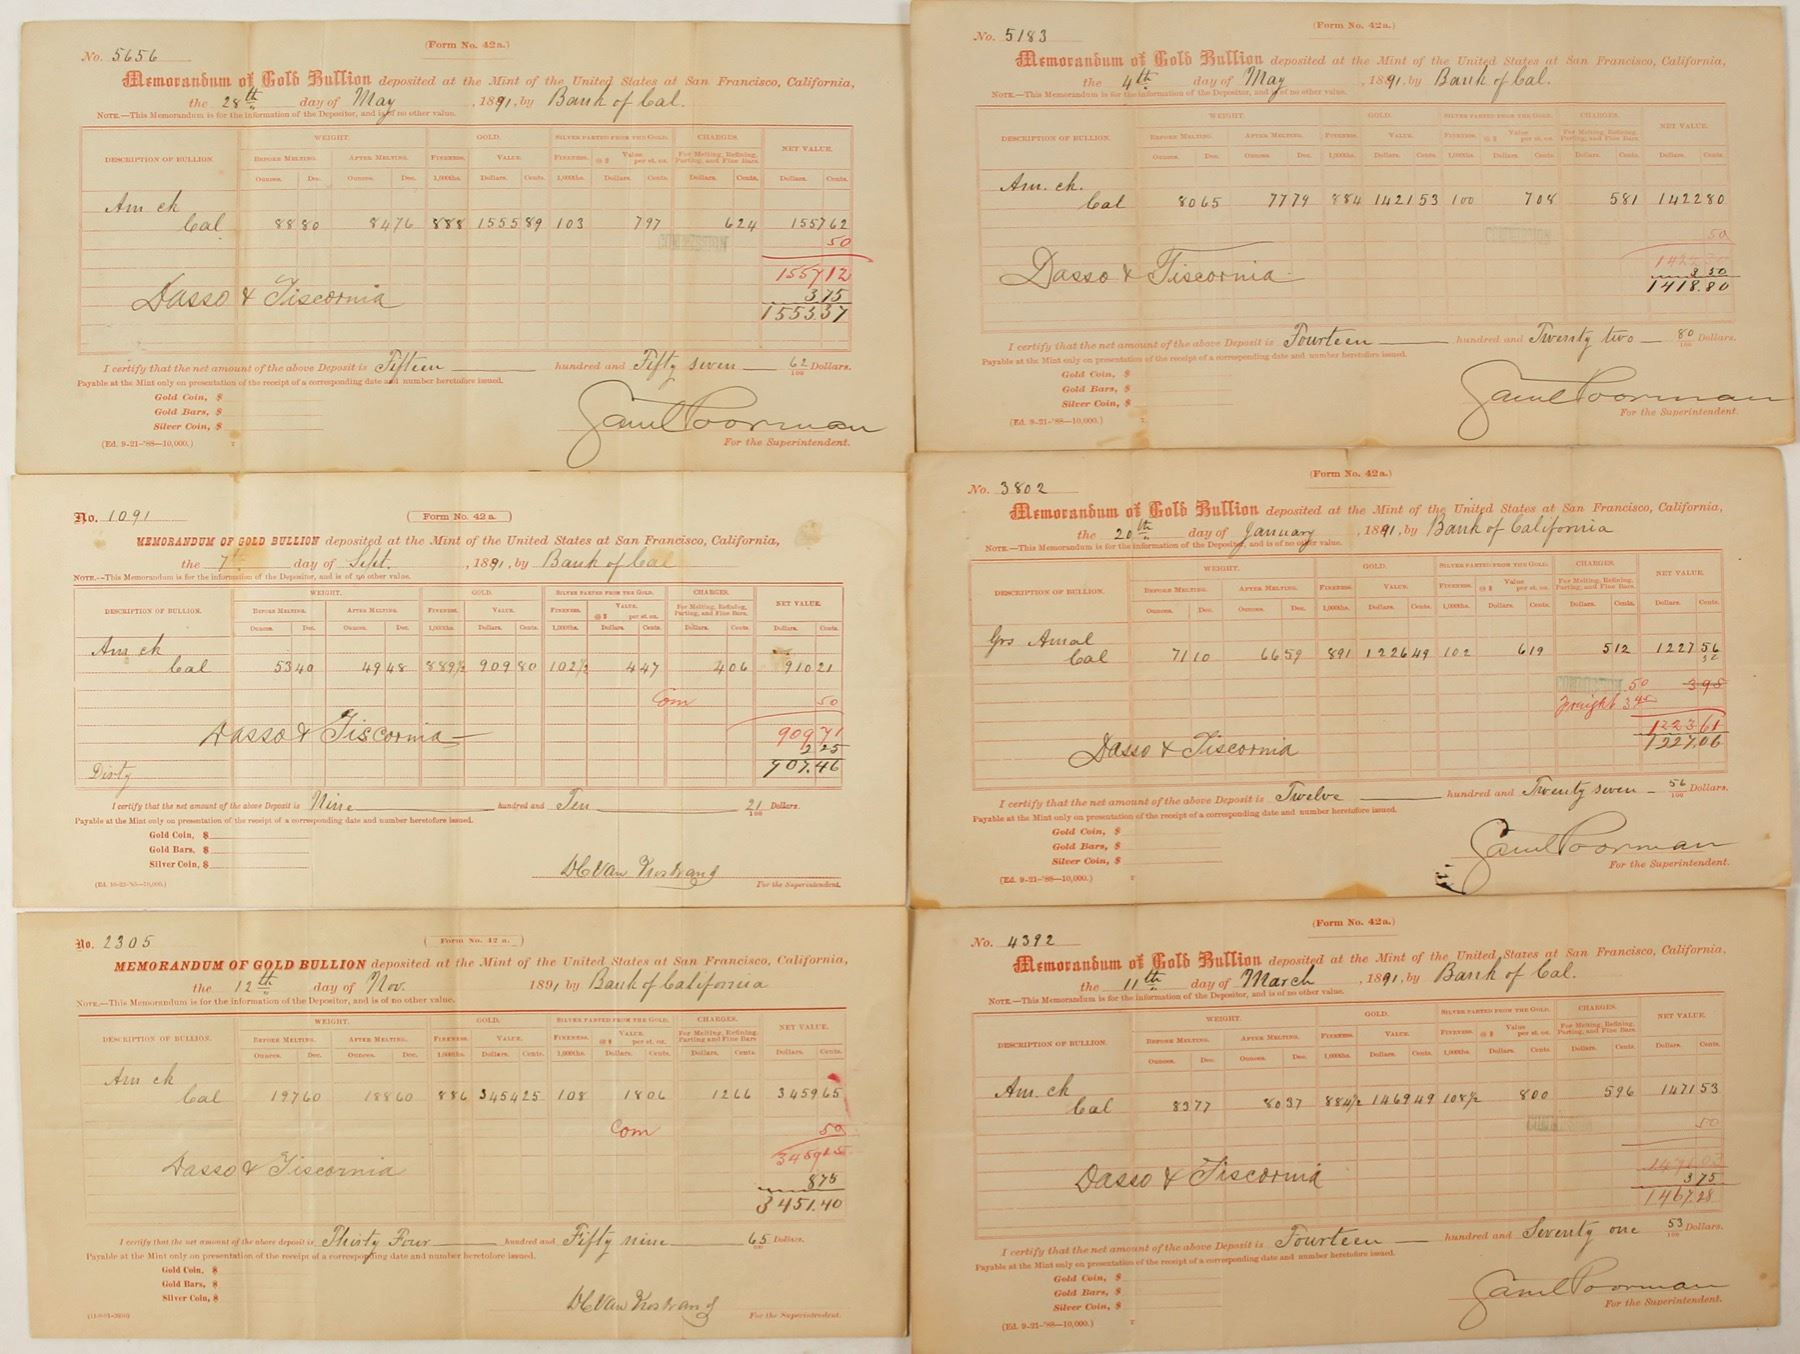 No. 5656
(Form No. 42a.)
Memorandum of Gold Bullion deposited at the Mint of the United States at San Francisco, California,
the 28th day of May, 1891, by Bank of Cal.
NOTE.—This Memorandum is for the information of the Depositor, and is of no other value.
DESCRIPTION OF BULLION. WEIGHT. GOLD. SILVER PARTED FROM THE GOLD. CHARGES. NET VALUE.
BEFORE MELTING. AFTER MELTING. FINENESS. VALUE. FINENESS. @ $ Value per st. oz. For Melting, Refining, Parting, and Fine Bars.
Ounces. Dec. Ounces. Dec. 1,000ths. Dollars. Cents. 1,000ths. Dollars. Cents. Dollars. Cents. Dollars. Cents.
Am ck
Cal 88 80 84 76 888 1555 89 103 7 97 6 24 1557 62
COMMISSION 50
1557 12
Dasso & Tiscornia 3 75
1553.37
I certify that the net amount of the above Deposit is Fifteen hundred and Fifty seven 62/100 Dollars.
Payable at the Mint only on presentation of the receipt of a corresponding date and number heretofore issued.
Gold Coin, $
Gold Bars, $
Silver Coin, $
Saml Poorman
(Ed. 9-21-'88—10,000.) For the Superintendent.
No. 5183
(Form No. 42a.)
Memorandum of Gold Bullion deposited at the Mint of the United States at San Francisco, California,
the 4th day of May, 1891, by Bank of Cal.
NOTE.—This Memorandum is for the information of the Depositor, and is of no other value.
DESCRIPTION OF BULLION. WEIGHT. GOLD. SILVER PARTED FROM THE GOLD. CHARGES. NET VALUE.
BEFORE MELTING. AFTER MELTING. FINENESS. VALUE. FINENESS. @ $ Value per st. oz. For Melting, Refining, Parting, and Fine Bars.
Ounces. Dec. Ounces. Dec. 1,000ths. Dollars. Cents. 1,000ths. Dollars. Cents. Dollars. Cents. Dollars. Cents.
Am. ck.
Cal 80 65 77 79 884 1421 53 100 7 08 5 81 1422 80
COMMISSION 50
Dasso & Tiscornia 3 50
1418.80
I certify that the net amount of the above Deposit is Fourteen hundred and Twenty two 80/100 Dollars.
Payable at the Mint only on presentation of the receipt of a corresponding date and number heretofore issued.
Gold Coin, $
Gold Bars, $
Silver Coin, $
Saml Poorman
(Ed. 9-21-'88—10,000.) For the Superintendent.
No. 1091
(Form No. 42 a.)
MEMORANDUM OF GOLD BULLION deposited at the Mint of the United States at San Francisco, California,
the 7th day of Sept., 1891, by Bank of Cal
NOTE.—This Memorandum is for the information of the Depositor, and is of no other value.
DESCRIPTION OF BULLION. WEIGHT. GOLD. SILVER PARTED FROM THE GOLD. CHARGES. NET VALUE.
BEFORE MELTING. AFTER MELTING. FINENESS. VALUE. FINENESS. @ $ VALUE. per st. oz. For Melting, Refining, Parting, and Fine Bars.
Ounces. Dec. Ounces. Dec. 1,000ths. Dollars. Cents. 1,000ths. Dollars. Cents. Dollars. Cents. Dollars. Cents.
Am ck
Cal 53 40 49 48 889½ 909 80 102½ 4 47 4 06 910 21
Com 50
Dasso & Tiscornia 909 71
2 25
Dirty 907.46
I certify that the net amount of the above Deposit is Nine hundred and Ten 21/100 Dollars.
Payable at the Mint only on presentation of the receipt of a corresponding date and number heretofore issued.
Gold Coin, $
Gold Bars, $
Silver Coin, $
(Ed. 10-23-'85—10,000.) For the Superintendent.
No. 3802
(Form No. 42a.)
Memorandum of Gold Bullion deposited at the Mint of the United States at San Francisco, California,
the 20th day of January, 1891, by Bank of California
NOTE.—This Memorandum is for the information of the Depositor, and is of no other value.
DESCRIPTION OF BULLION. WEIGHT. GOLD. SILVER PARTED FROM THE GOLD. CHARGES. NET VALUE.
BEFORE MELTING. AFTER MELTING. FINENESS. VALUE. FINENESS. @ $ Value per st. oz. For Melting, Refining, Parting, and Fine Bars.
Ounces. Dec. Ounces. Dec. 1,000ths. Dollars. Cents. 1,000ths. Dollars. Cents. Dollars. Cents. Dollars. Cents.
Grs Amal
Cal 71 10 66 59 891 1226 49 102 6 19 5 12 1227 56
COMMISSION 50 3 95
Freight 3 45
1223 61
Dasso & Tiscornia 1227.06
I certify that the net amount of the above Deposit is Twelve hundred and Twenty seven 56/100 Dollars.
Payable at the Mint only on presentation of the receipt of a corresponding date and number heretofore issued.
Gold Coin, $
Gold Bars, $
Silver Coin, $
Saml Poorman
(Ed. 9-21-'88—10,000.) For the Superintendent.
No. 2305
(Form No. 42 a.)
MEMORANDUM OF GOLD BULLION deposited at the Mint of the United States at San Francisco, California,
the 12th day of Nov. 1891 by Bank of California
NOTE.—This Memorandum is for the information of the Depositor, and is of no other value.
DESCRIPTION OF BULLION. WEIGHT. GOLD. SILVER PARTED FROM THE GOLD. CHARGES. NET VALUE.
BEFORE MELTING. AFTER MELTING. FINENESS. VALUE. FINENESS. @ $ VALUE. per st. oz. For Melting, Refining, Parting and Fine Bars
Ounces. Dec. Ounces. Dec. 1,000ths Dollars. Cents. 1,000ths. Dollars. Cents. Dollars. Cents. Dollars. Cents.
Am ck
Cal 197 60 188 60 886 3454 25 108 18 06 12 66 3459 65
Com 50
3459 15
Dasso & Tiscornia 8 75
3451.40
I certify that the net amount of the above deposit is Thirty Four hundred and Fifty nine 65/100 Dollars.
Payable at the Mint only on presentation of the receipt of a corresponding date and number heretofore issued.
Gold Coin, $
Gold Bars, $
Silver Coin, $
For the Superintendent.
No. 4392
(Form No. 42a.)
Memorandum of Gold Bullion deposited at the Mint of the United States at San Francisco, California,
the 11th day of March, 1891, by Bank of Cal.
NOTE.—This Memorandum is for the information of the Depositor, and is of no other value.
DESCRIPTION OF BULLION. WEIGHT. GOLD. SILVER PARTED FROM THE GOLD. CHARGES. NET VALUE.
BEFORE MELTING. AFTER MELTING. FINENESS. VALUE. FINENESS. @ $ Value per st. oz. For Melting, Refining, Parting, and Fine Bars
Ounces. Dec. Ounces. Dec. 1,000ths. Dollars. Cents. 1,000ths. Dollars. Cents. Dollars. Cents. Dollars. Cents.
Am. ck
Cal 83 77 80 37 884½ 1469 49 108½ 8 00 5 96 1471 53
COMMISSION 50
1471 03
Dasso & Tiscornia 3 75
1467.28
I certify that the net amount of the above Deposit is Fourteen hundred and Seventy one 53/100 Dollars.
Payable at the Mint only on presentation of the receipt of a corresponding date and number heretofore issued.
Gold Coin, $
Gold Bars, $
Silver Coin, $
Saml Poorman
(Ed. 9-21-'88—10,000.) For the Superintendent.